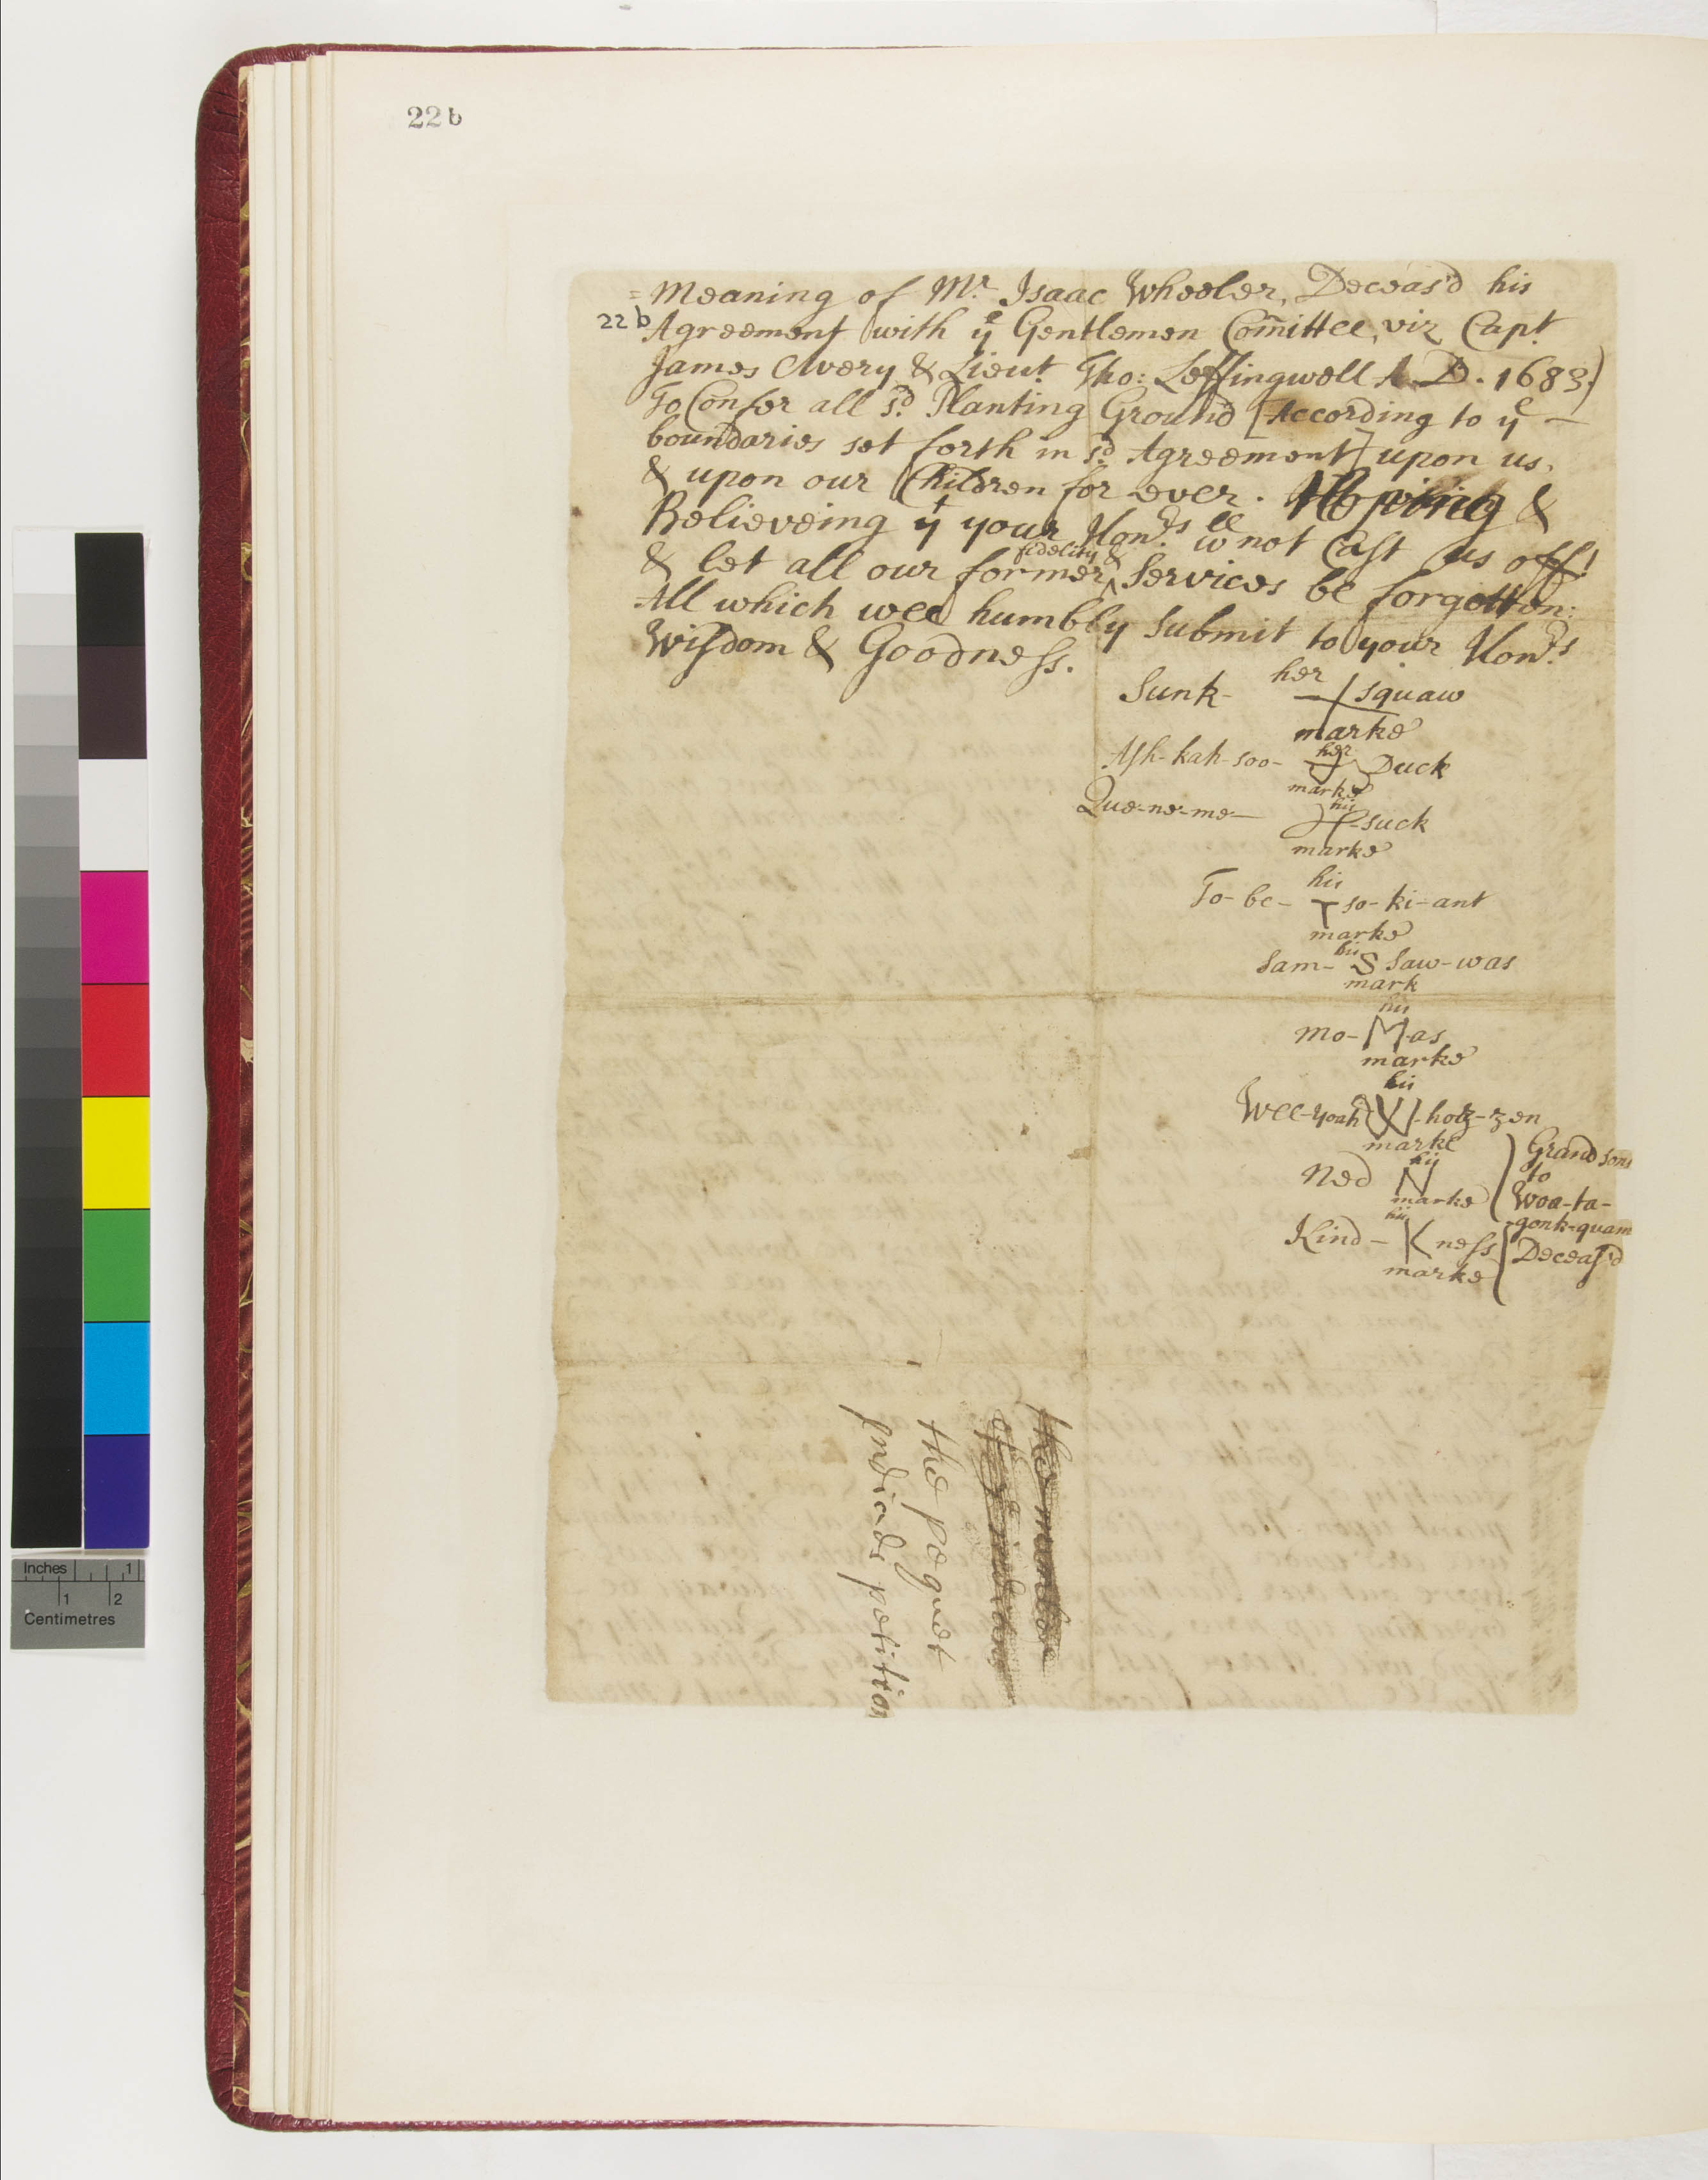 22 b
= Meaning of Mr. Isaac Wheeler, Deceas'd his
22 b
Agreement with ye Gentlemen Com̃ittee, viz Capt.
James Avery & Lieut. Tho: Leffingwell A.D. 1683.)
To Confer all sd. Planting Ground [According to ye —
boundaries set forth in sd. Agreement] upon us,
& upon our Children for ever. Hoping &
Believeing yt your Honrs. will not Cast us off!
& let all our former ^ fidelity & Services be forgotten:
All which wee humbly submit to your Honrs.
Wisdom & Goodness.
her
Sunk- squaw
marke
her
Ash-kah-soo- Duck
marke
his
Que-ne-me- -suck
marke
his
To-be- T so-ki-ant
marke
his
Sam- S Saw-was
mark
his
Mo- M -as
marke
his
Wee-yoah W -hotz-zen
marke
his
Ned N
marke
his
Kind- K ness
marke
Grandsons
to
Woa-ta-
-gonk-quam
Deceas'd
the
of ye
the poquet
Indians petition
Inches 1
1 2
Centimetres